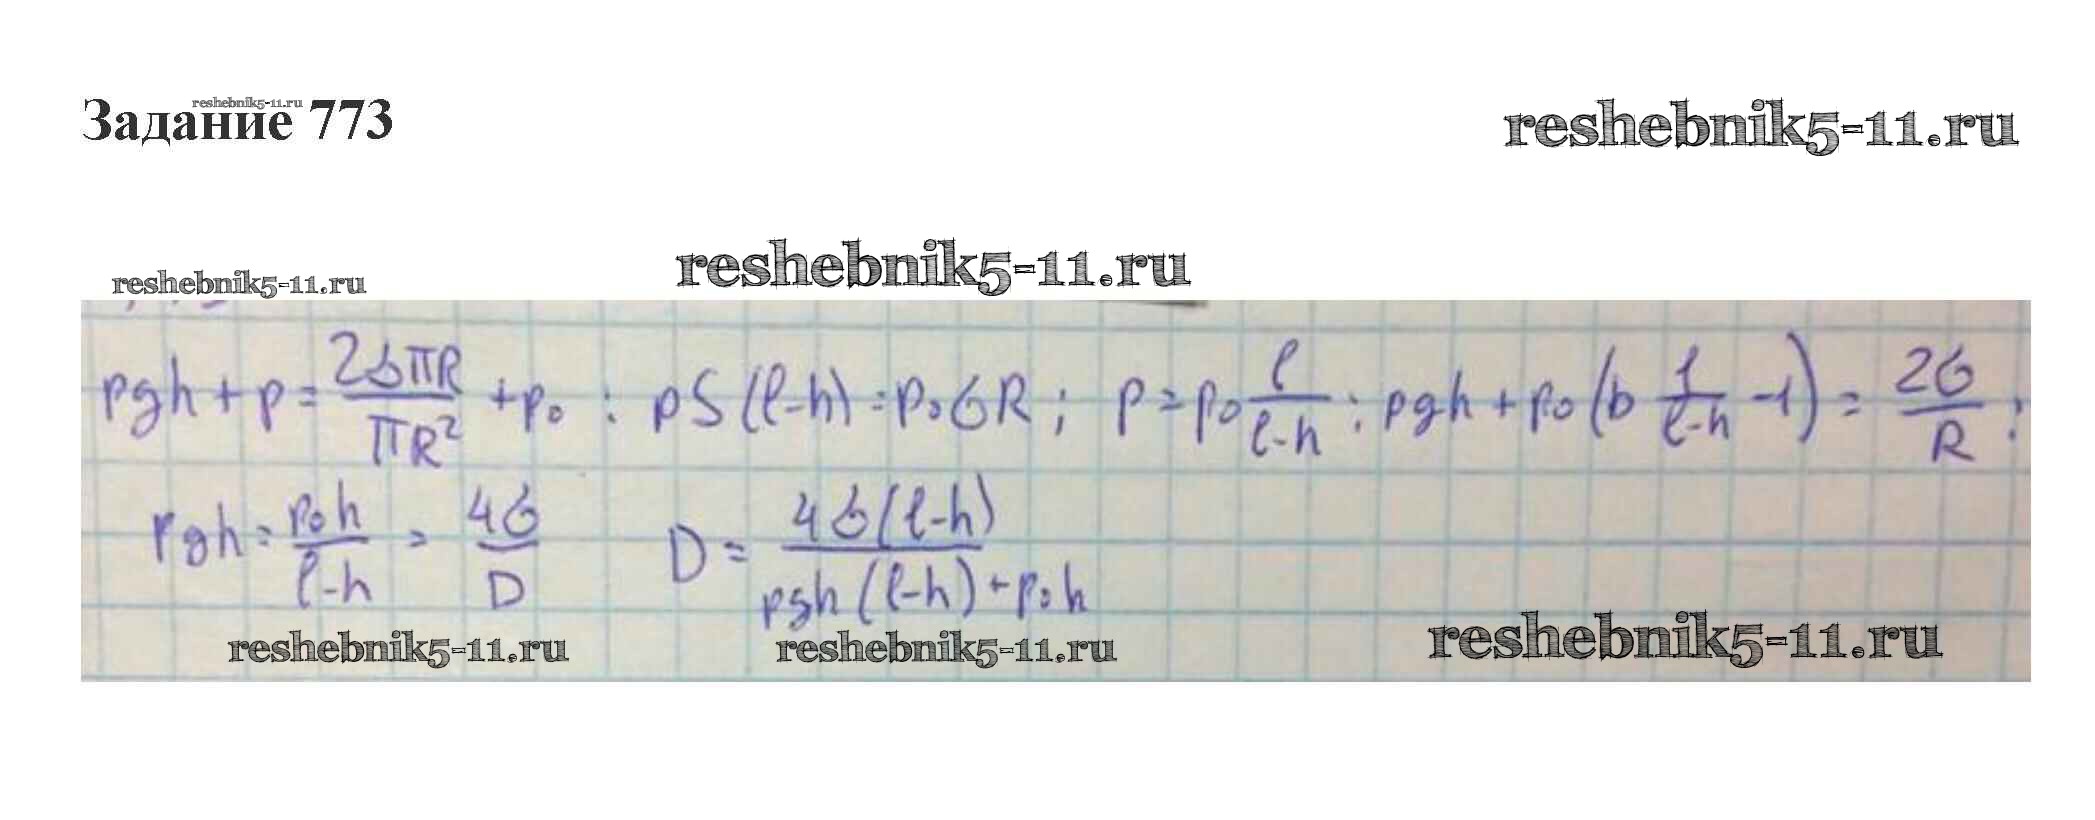 reshebnik5-11.ru
Задание 773
reshebnik5-11.ru
reshebnik5-11.ru
reshebnik5-11.ru
ρgh + p = 2σπR / πR² + p₀ : pS(l-h) = p₀σR ; p = p₀ l / l-h : ρgh + p₀(b 1 / l-h - 1) = 2σ / R :
ρgh = p₀h / l-h = 4σ / D   D = 4σ(l-h) / ρgh(l-h) + p₀h
reshebnik5-11.ru
reshebnik5-11.ru
reshebnik5-11.ru